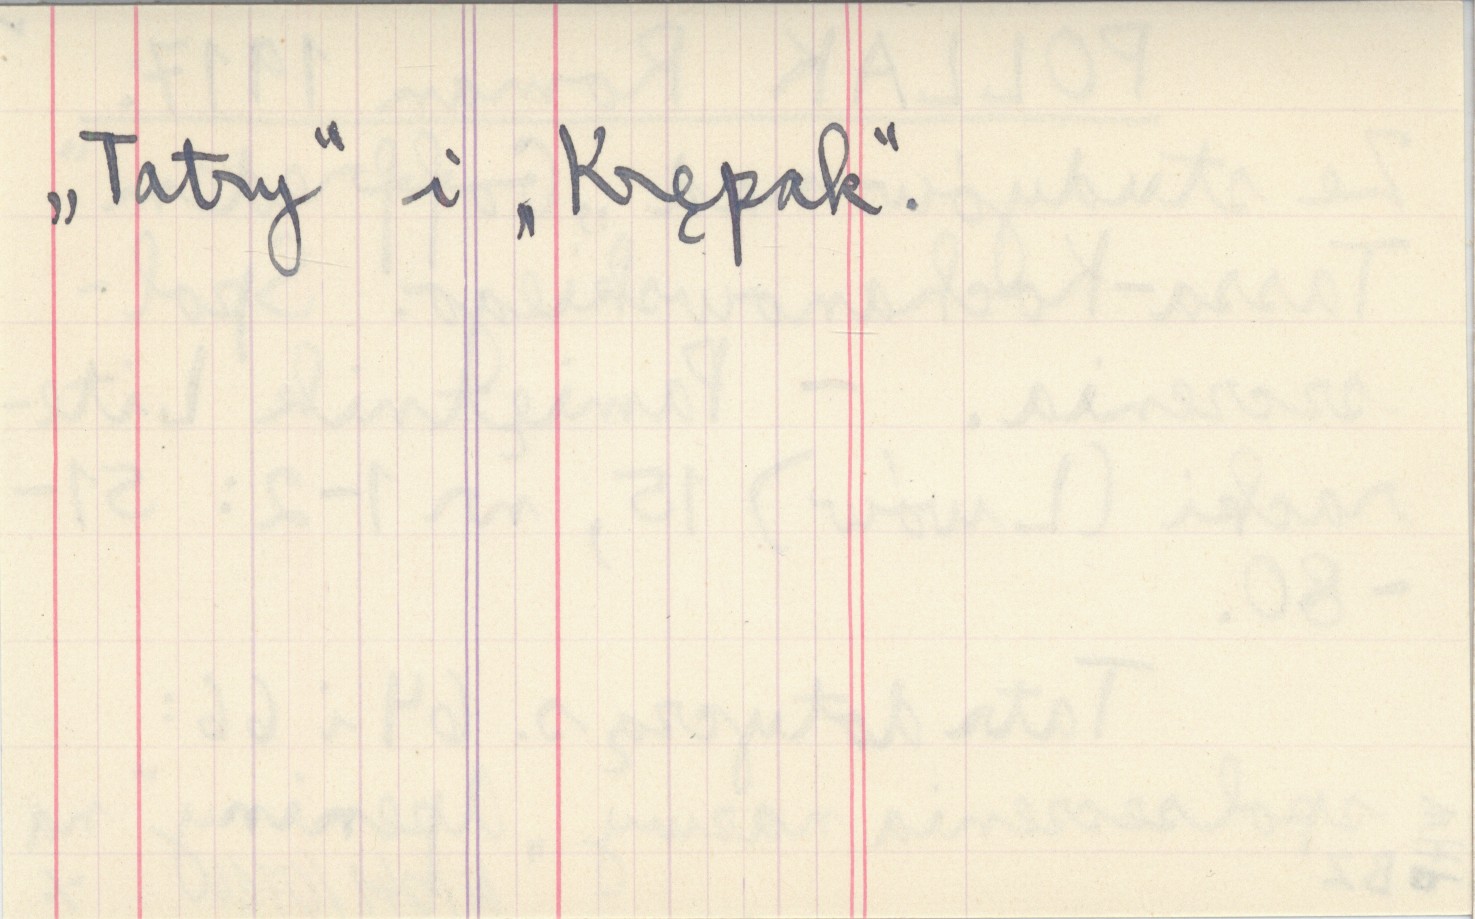 „Tatry” i „Krępak”.